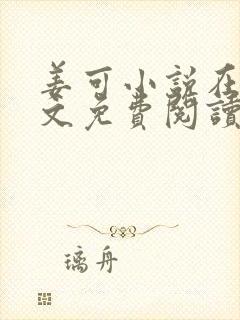 姜可小说在
文免費閱讀
璃舟